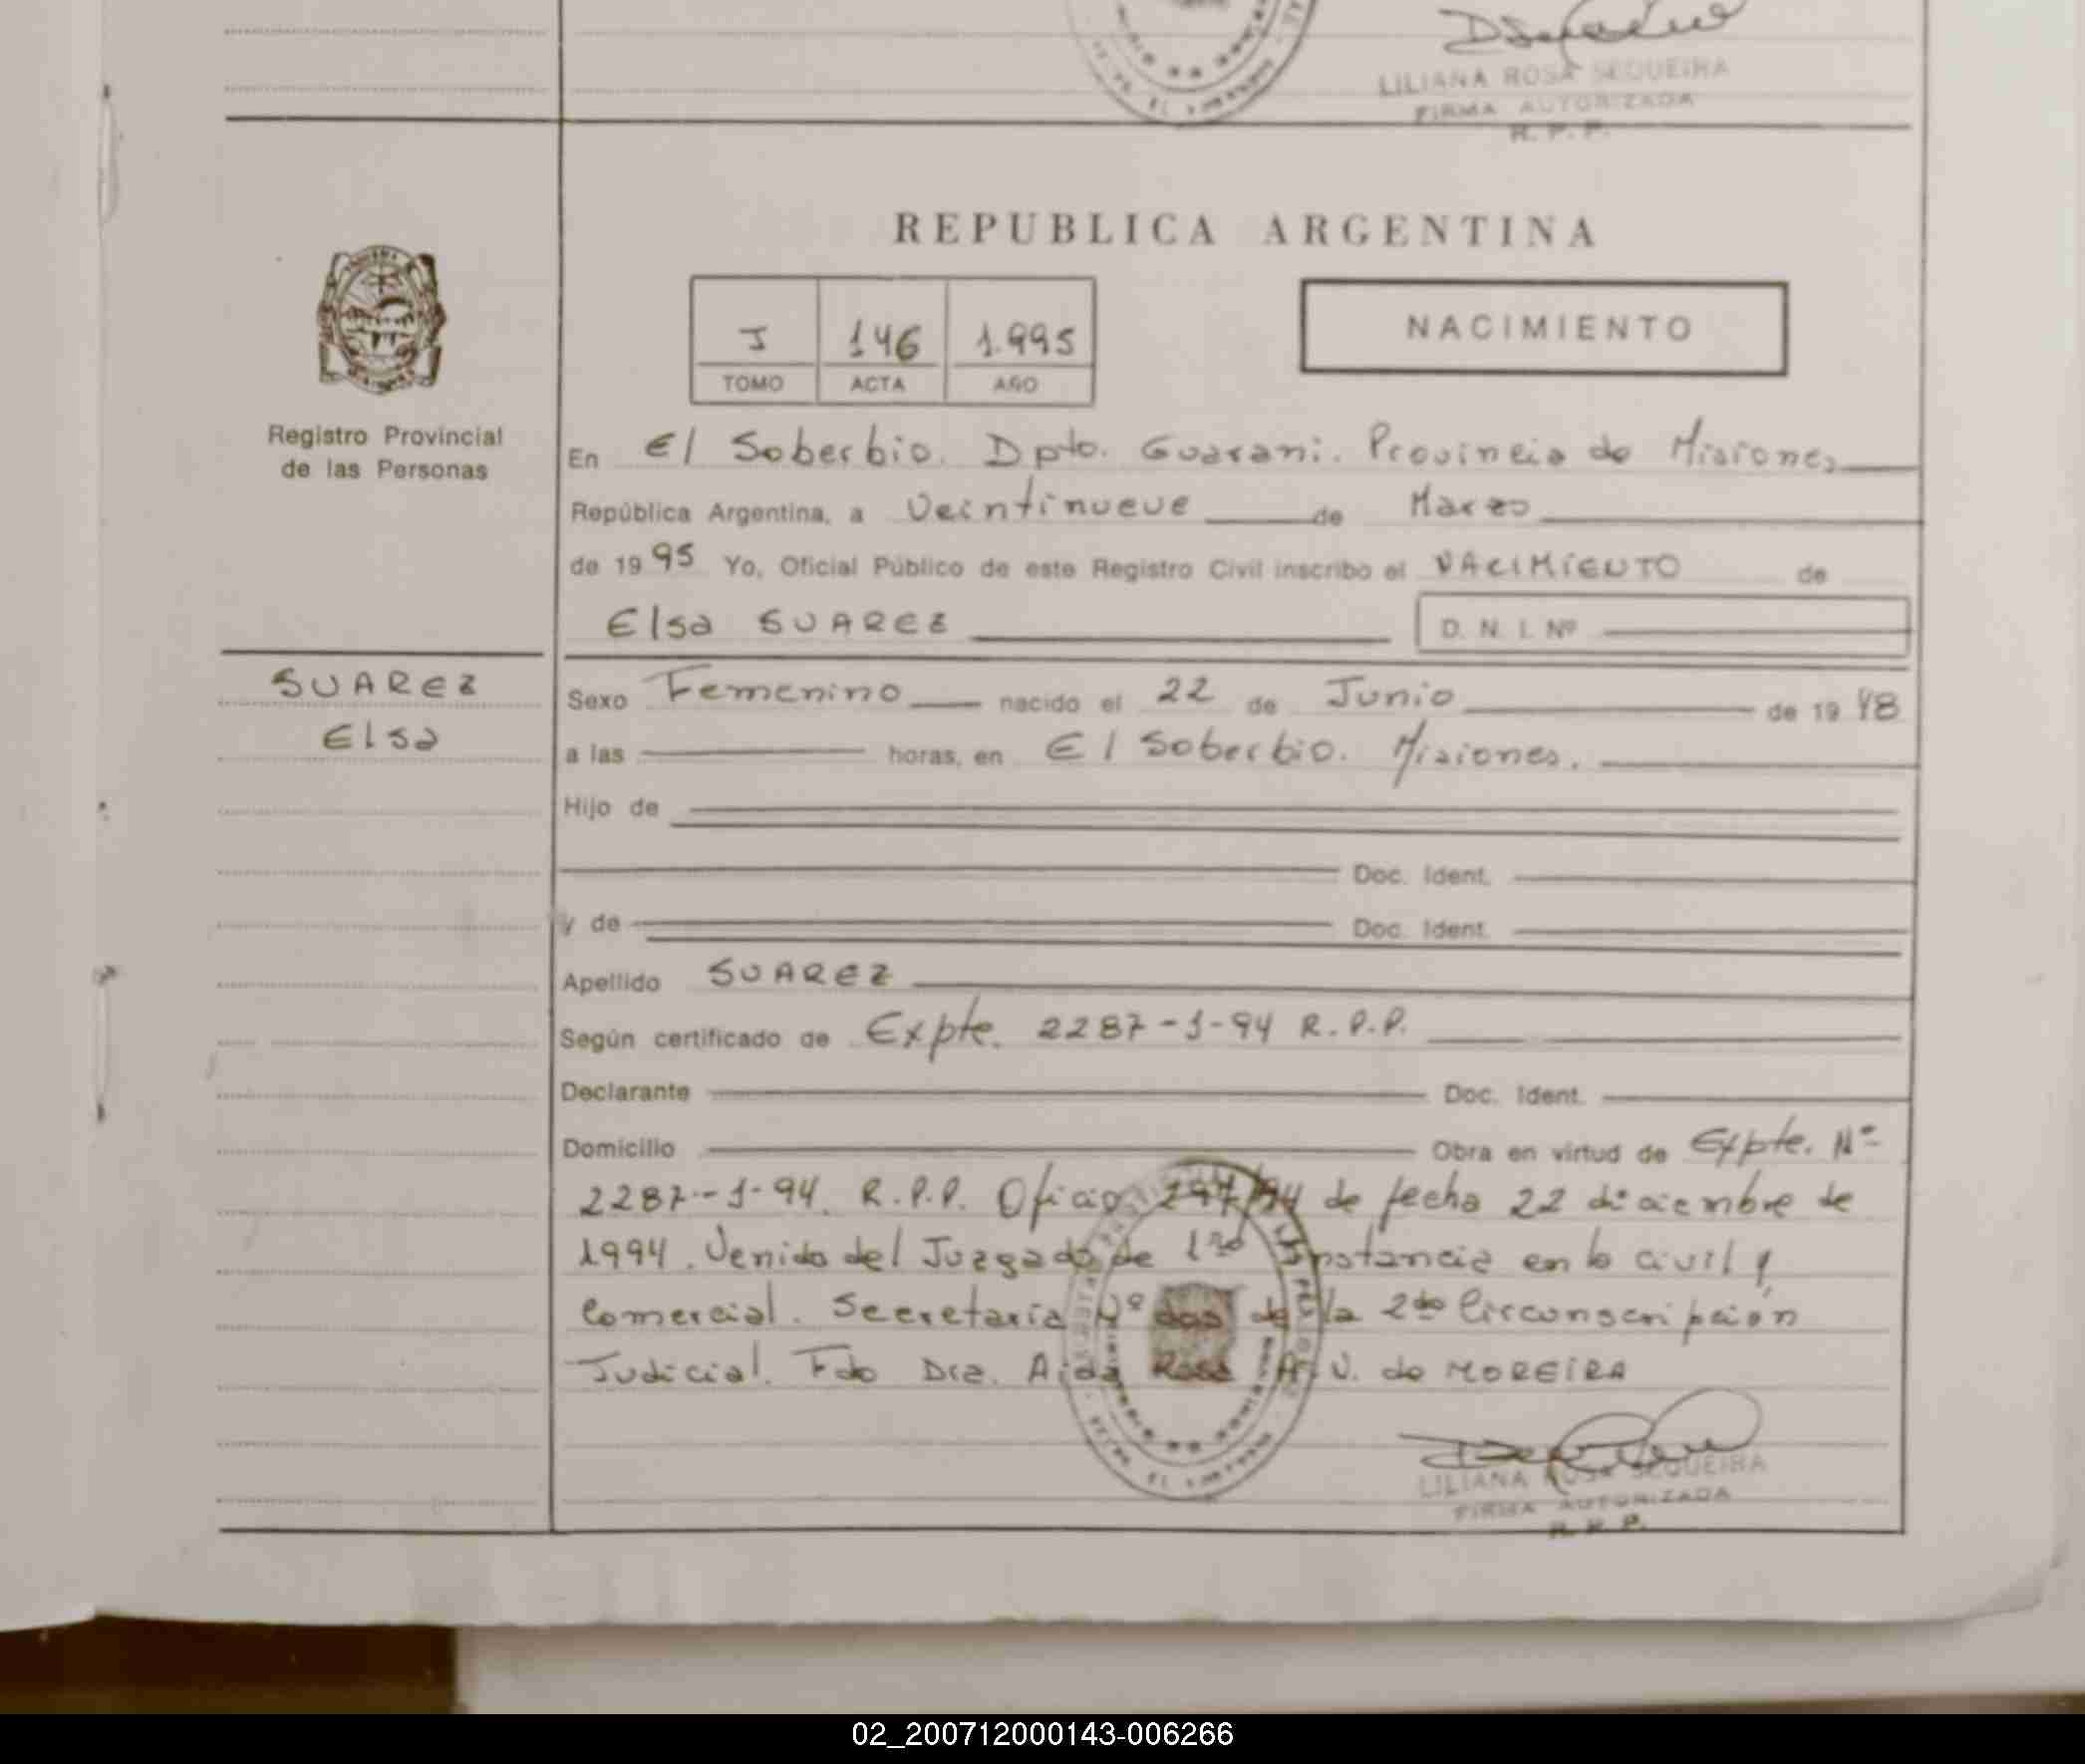 LILIANA ROSA SEQUEIRA
FIRMA AUTORIZADA
R. P. P.
REPUBLICA ARGENTINA
J 146 1.995
TOMO ACTA AÑO
NACIMIENTO
Registro Provincial
de las Personas
En El Soberbio. Dpto. Guarani. Provincia de Misiones
República Argentina, a Veintinueve de Marzo
de 1995 Yo, Oficial Público de este Registro Civil inscribo el NACIMIENTO de
Elsa SUAREZ D. N. I. Nº
SUAREZ
Elsa
Sexo Femenino nacido el 22 de Junio de 1948
a las horas, en El Soberbio. Misiones.
Hijo de
Doc. Ident.
y de Doc. Ident.
Apellido SUAREZ
Según certificado de Expte. 2287-1-94 R.P.P.
Declarante Doc. Ident.
Domicilio Obra en virtud de Expte. Nº
2287-1-94. R.P.P. Oficio de fecha 22 diciembre de
1994. Venido del Juzgado de 1ra Instancia en lo civil y
Comercial. Secretaria Nº dos de la 2da Circunscripción
Judicial. Fdo Dra. Aida Rosa A. V. de MOREIRA
LILIANA ROSA SEQUEIRA
FIRMA AUTORIZADA
R. P. P.
02_200712000143-006266